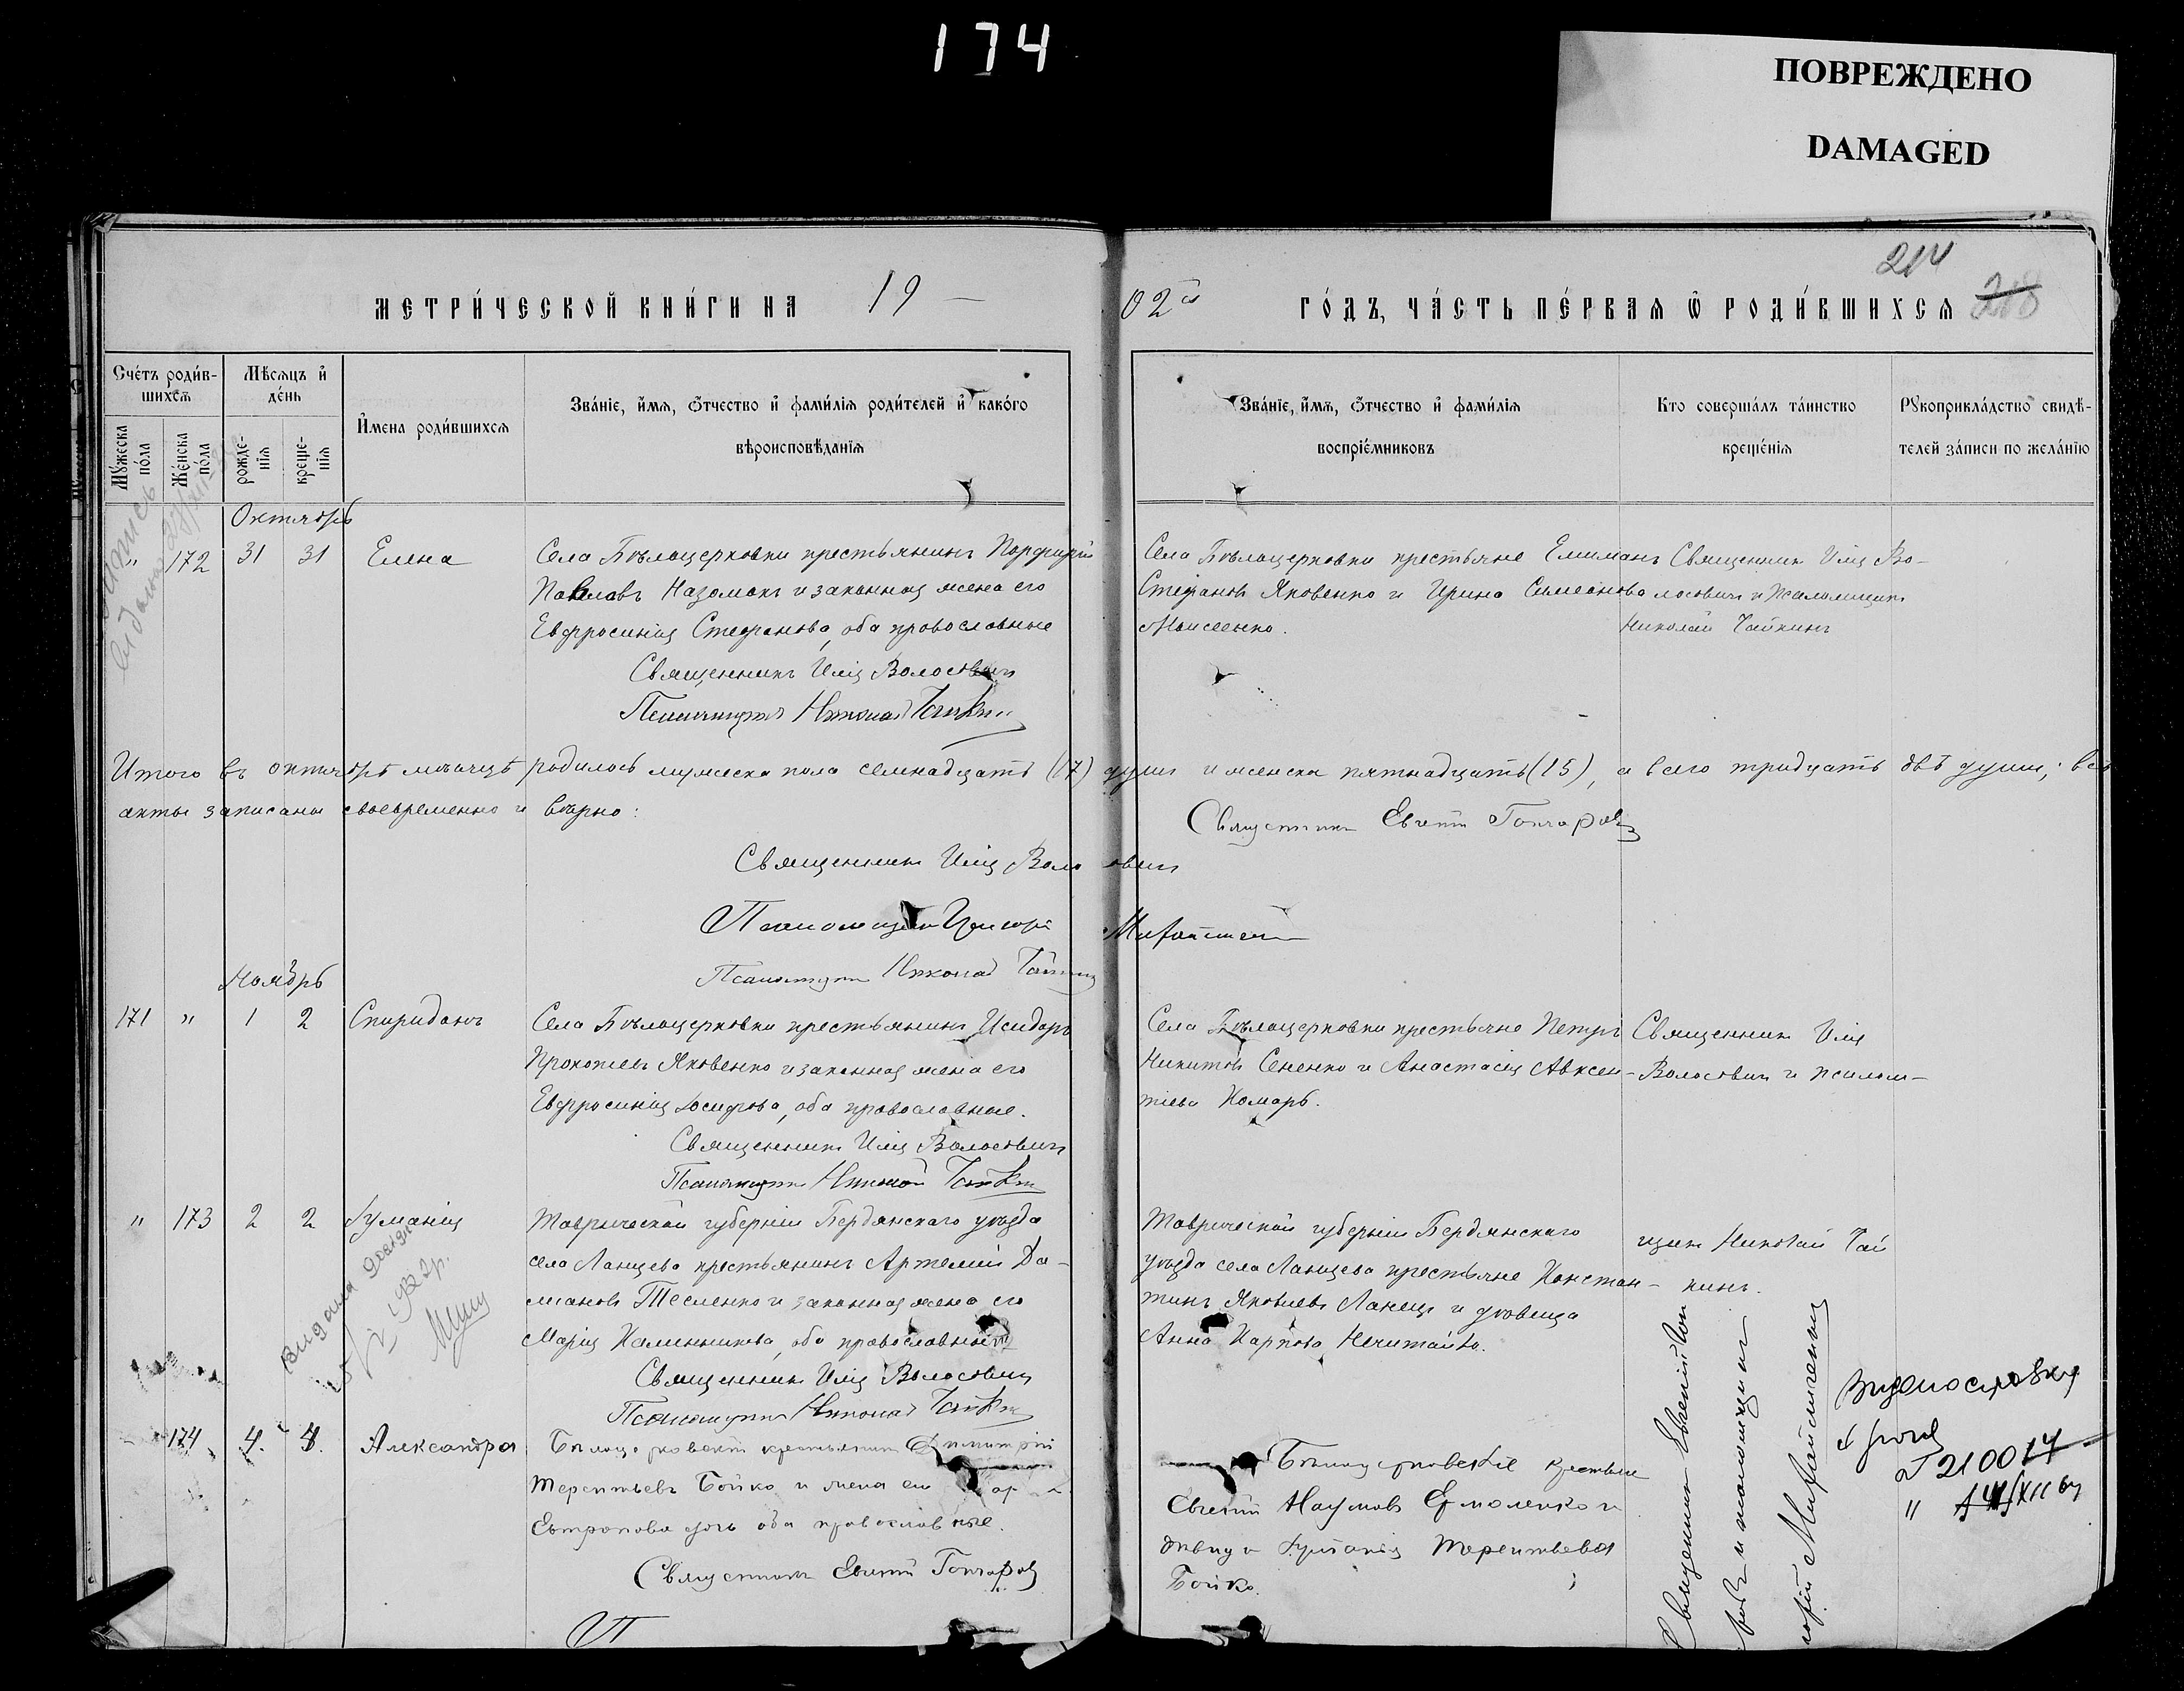 174
ПОВРЕЖДЕНО
DAMAGED
214
218
МЕТРИ́ЧЕСКОЙ КНИ́ГИ НА 19
02й ГО́ДЪ, ЧА́СТЬ ПЕ́РВАЯ Ѿ РОДИ́ВШИХСЯ
Счéтъ роди́в-
шихсѧ
Мѣсѧцъ и҆
дéнь
Мꙋ́жеска
по́ла
Же́нска
по́ла
рожде-
нїѧ
креще-
нїѧ
И҆мена роди́вшихсѧ
Зва́нїе, и҆́мѧ, ѻ҆́тчество и҆ фами́лїѧ роди́телей и҆ како́го
вѣроисповѣ́данїѧ
Зва́нїе, и҆́мѧ, ѻ҆́тчество и҆ фами́лїѧ
воспрїе́мниковъ
Кто соверша́лъ та́инство
креще́нїѧ
Рꙋкоприкла́дство свидѣ́-
телей за́писи по жела́нїю
Октябрь
" 172 31 31 Елена
Села Бѣлоцерковки крестьянинъ Порфирій
Павловъ Назомокъ и законная жена его
Евфросинія Стефанова, оба православные
Священникъ Илія Волосовичъ
Псаломщикъ Николай Чайкинъ
Села Бѣлоцерковки крестьяне
Стефановъ Яковенко и Ирина Симеонова
Моисеенко.
Священникъ Илія Во-
лосовичъ и псаломщикъ
Николай Чайкинъ
Итого въ октябрѣ мѣсяцѣ родилось мужеска пола семнадцать (17) душъ и женска пятнадцать (15), а всего тридцать двѣ души; всѣ
акты записаны своевременно и вѣрно:
Священникъ Евгеній Гончаровъ
Священникъ Илія Волосовичъ
Псаломщикъ Григорій
Псаломщикъ Николай Чайкинъ
Ноябрь
171 " 1 2 Спиридонъ
Села Бѣлоцерковки крестьянинъ Исидоръ
Прокопіевъ Яковенко и законная жена его
Евфросинія Іосифова, оба православные.
Священникъ Илія Волосовичъ
Псаломщикъ Николай Чайкинъ
Села Бѣлоцерковки крестьяне Петръ
Никитовъ Сененко и Анастасія Авксен-
тіева Комаръ.
Священникъ Илія
Волосовичъ и псалом-
" 173 2 2 Іуліанія
Таврической губерніи Бердянскаго уѣзда
села Ланцева крестьянинъ Артемій Да-
міановъ Тесленко и законная жена его
Марія Калинникова, оба православные
Священникъ Илія Волосовичъ
Псаломщикъ Николай Чайкинъ
Таврической губерніи Бердянскаго
уѣзда села Ланцева крестьяне Констан-
тинъ Яковлевъ Ланецъ и дѣвица
Анна Карпова Нечитайло.
щикъ Николай Чай
кинъ.
174 4. 4. Александра
Бѣлоцерковскій крестьянинъ Димитрій
Терентьевъ Бойко и жена его
Евтропова дочь оба православные.
Священникъ Евгеній Гончаровъ
Бѣлоцерковскіе крестьяне
Евгеній Наумовъ Ермоленко и
дѣвица Іуліанія Терентьева
Бойко.
Священникъ Евгеній Гон
чаровъ и псаломщикъ